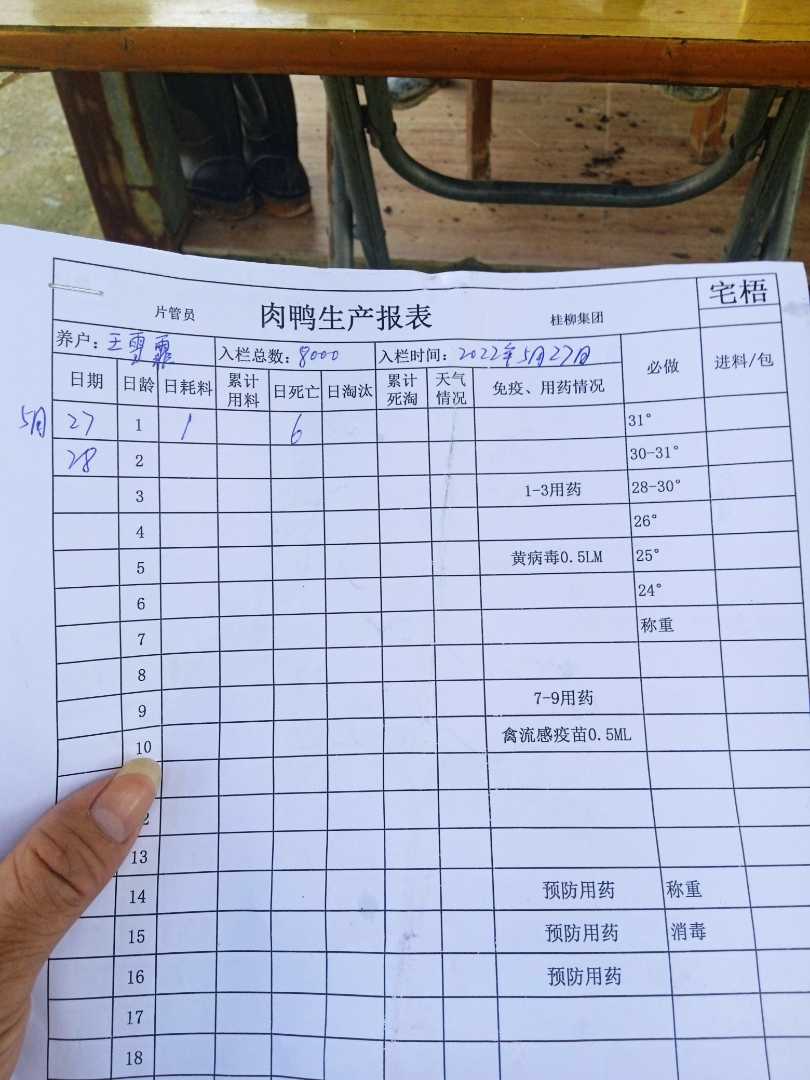 宅梧
片管员 肉鸭生产报表 桂柳集团
养户：王雪 入栏总数：8000 入栏时间：2022年5月27日 必做 进料/包
日期 日龄 日耗料 累计用料 日死亡 日淘汰 累计死淘 天气情况 免疫、用药情况
5月 27 1 1 6 31°
28 2 30-31°
3 1-3用药 28-30°
4 26°
5 黄病毒0.5LM 25°
6 24°
7 称重
8
9 7-9用药
10 禽流感疫苗0.5ML
2
13
14 预防用药 称重
15 预防用药 消毒
16 预防用药
17
18